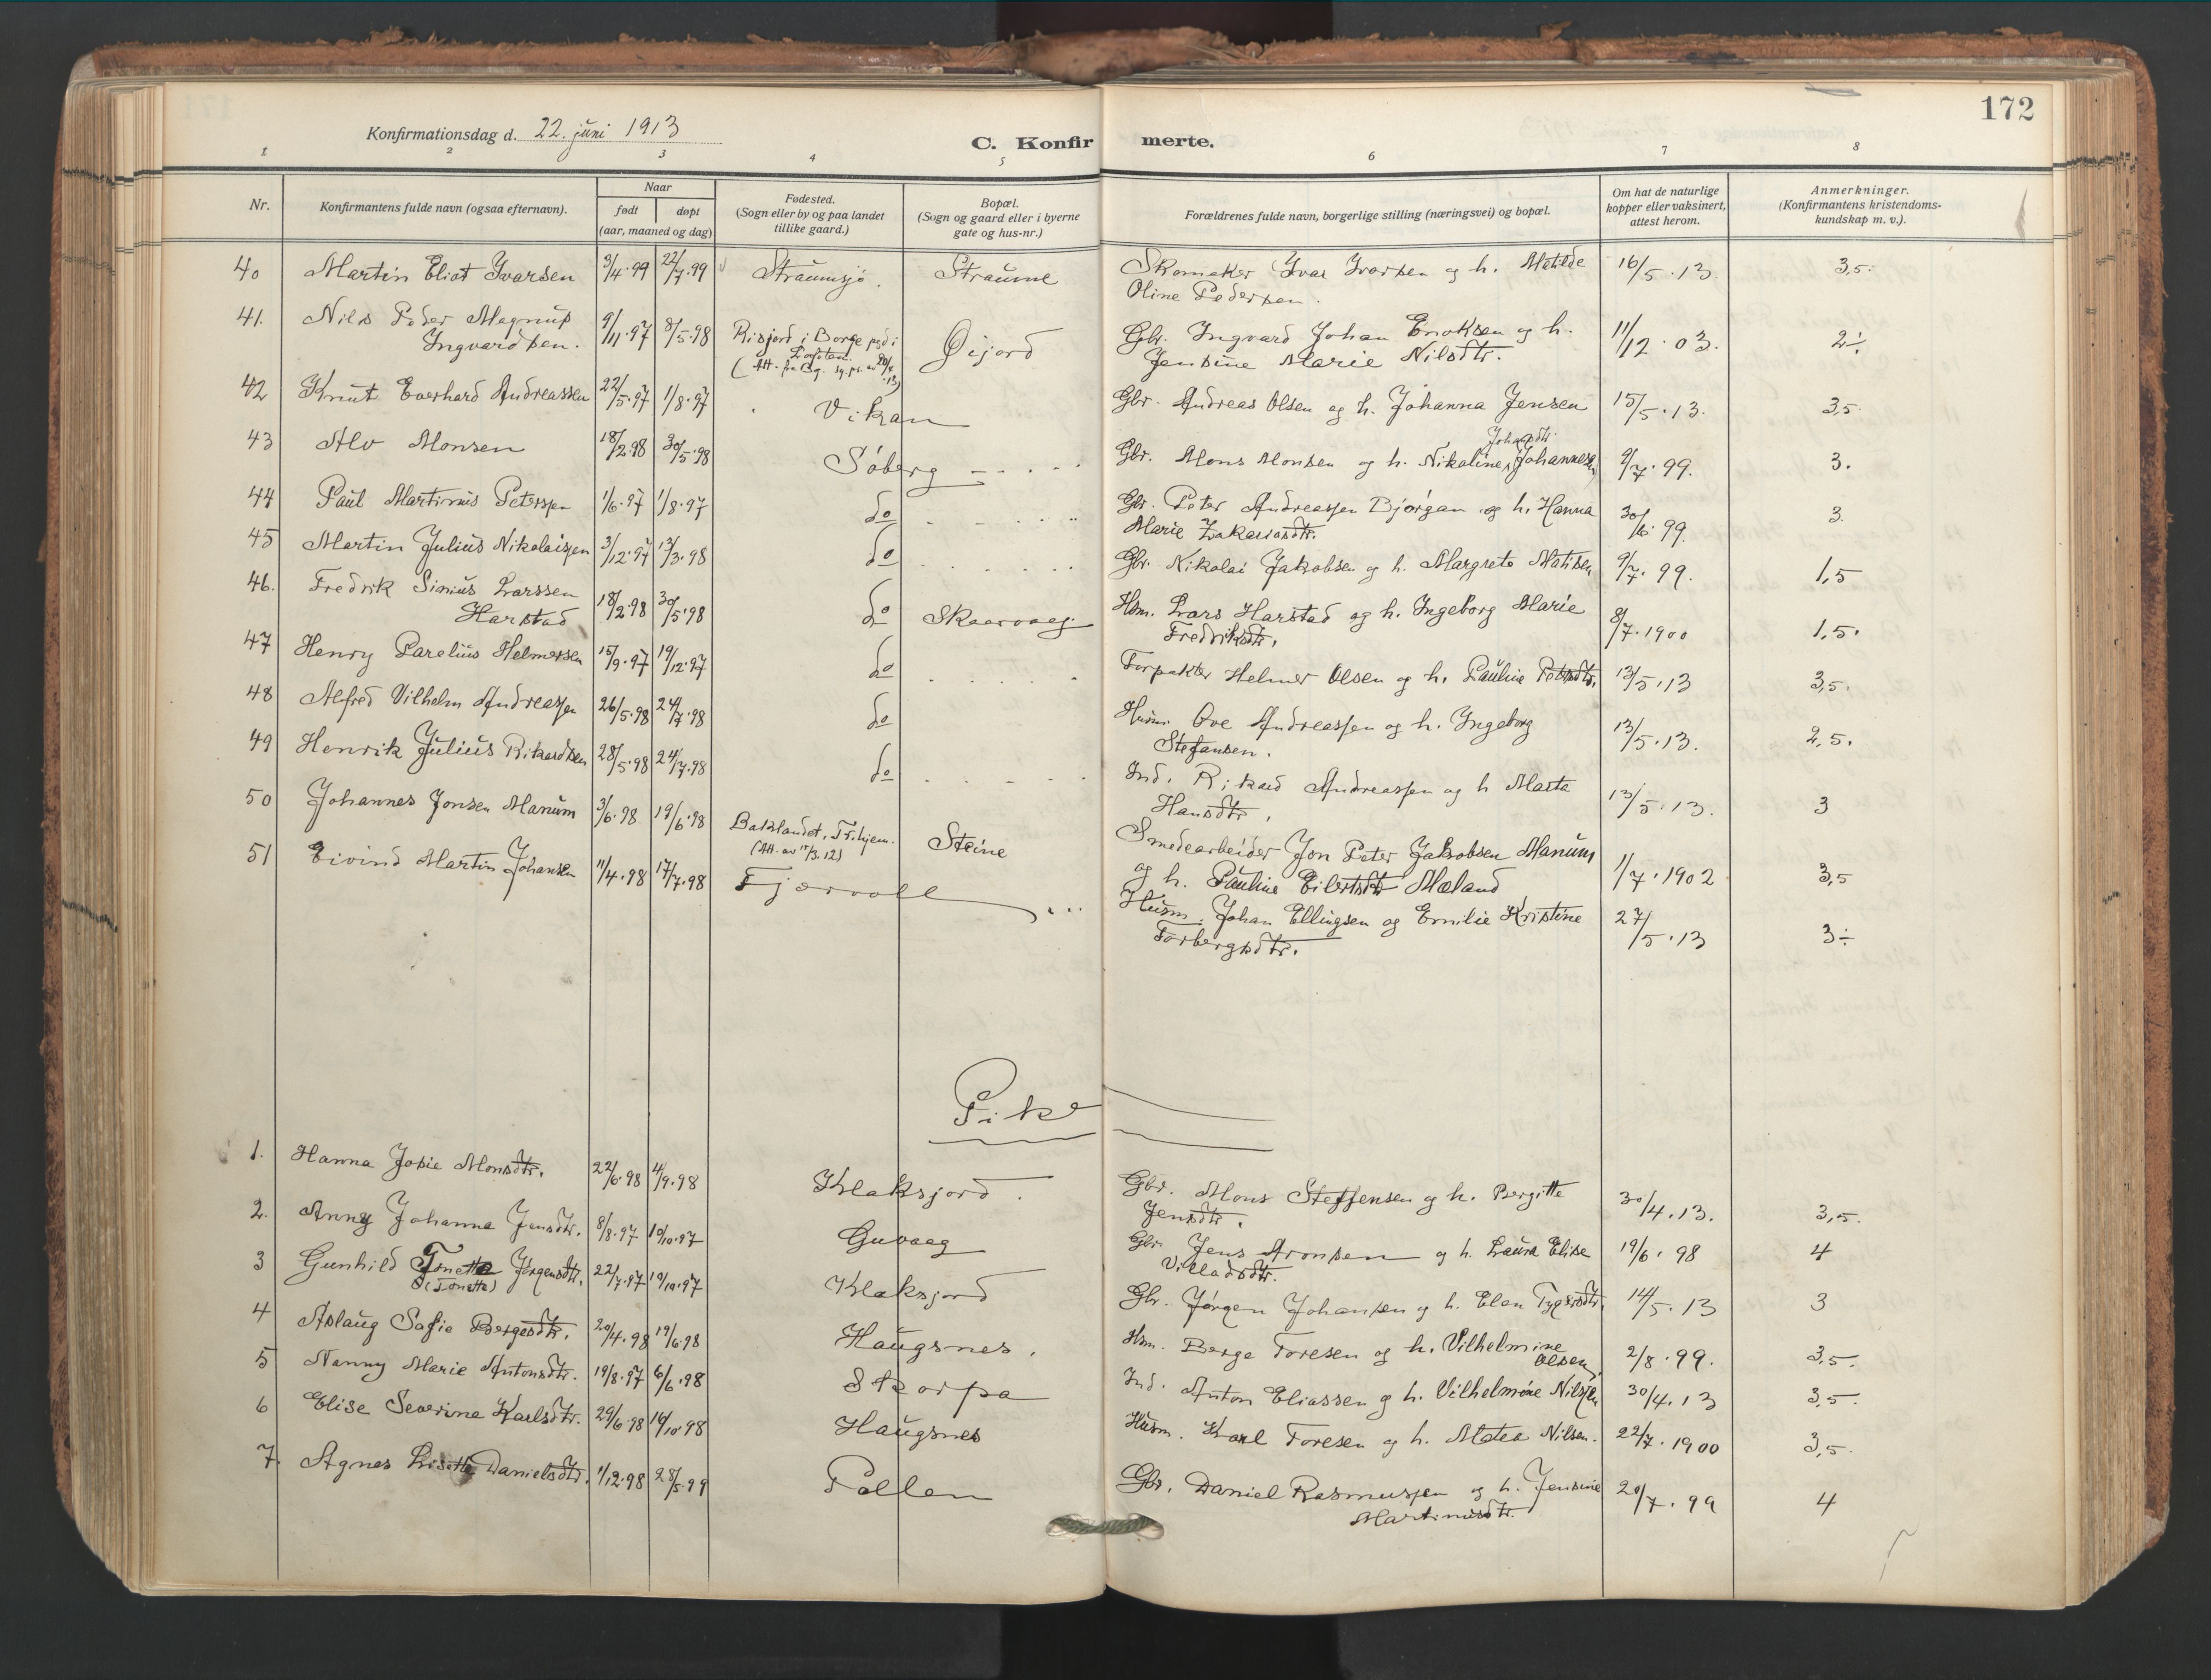 Konfirmationsdag d. 22. juni 1913
C. Konfirmerte.
172
1 2 3 4 5 6 7 8
Nr.
Konfirmantens fulde navn (ogsaa efternavn).
Naar
født døpt
(aar, maaned og dag)
Fødested.
(Sogn eller by og paa landet
tillike gaard.)
Bopæl.
(Sogn og gaard eller i byerne
gate og hus-nr.)
Forældrenes fulde navn, borgerlige stilling (næringsvei) og bopæl.
Om hat de naturlige
kopper eller vaksinert,
attest herom.
Anmerkninger.
(Konfirmantens kristendoms-
kundskap m. v.).
40 Martin Eliot Ivarsen 3/4.99 22/7.99 Straumsjø. Straume Skomaker Ivar Ivarsen og h. Matilde 16/5.13. 3,5.
Oline Pedersen.
41. Nils Peder Magnus 9/11.97 8/5.98 Risjord i Borge psd i Øijord Gbr. Ingvard Johan Enoksen og h. 11/12.03. 2÷
Ingvardsen. Lofoten. Jensine Marie Nilsdtr.
42 Knut Everhard Andreassen 22/5.97 1/8.97 Vikan Gbr. Andreas Olsen og h. Johanna Jensen 15/5.13. 3,5.
43 Alv Monsen 18/2.98 30/5.98 Søberg Gbr. Mons Monsen og h. Nikoline Johannesen 9/7.99. 3.
44 Paul Martinus Peterssen 1/6.97 1/8.97 do Gbr. Peter Andreassen Bjørgan og h. Hanna 30/6.99. 3.
Marie Zakariasdtr.
45 Martin Julius Nikolaissen 3/12.97 13/3.98 do Gbr. Nikolai Jakobsen og h. Margrete Matisen 9/7.99. 1,5
46. Fredrik Sinius Larssen 18/2.98 30/5.98 do Skaarvaag Hsm. Lars Harstad og h. Ingeborg Marie 8/7.1900 1,5.
Harstad Fredriksdtr.
47 Henry Parelius Helmersen 15/9.97 19/12.97 do Forpakter Helmer Olsen og h. Pauline Petersdtr. 13/5.13 3,5.
48 Alfred Vilhelm Andreassen 26/5.98 24/7.98 do Husm. Ove Andreassen og h. Ingeborg 13/5.13. 2,5.
Stefansen.
49 Henrik Julius Rikardsen 28/5.98 24/7.98 do Ind. Rikard Andreassen og h Marta 13/5.13. 3
Hansdtr.
50 Johannes Jonsen Manum 3/6.98 19/6.98 Baklandet, Tr.hjem. Steine Smedearbeider Jon Peter Jakobsen Manum 1/7.1902 3,5
(Att. av 15/3.12) og h. Pauline Eilertsdtr Mæland
51 Eivind Martin Johansen 11/4.98 17/7.98 Fjærvoll Husm. Johan Ellingsen og Emilie Kristine 27/5.13 3÷
Torbergsdtr.
Pike
1. Hanna Josie Monsdtr. 22/6.98 4/9.98 Klaksjord. Gbr. Mons Steffensen og h. Bergitte 30/4.13. 3,5.
Jensdtr.
2. Anny Johanna Jensdtr. 8/8.97 10/10.97 Guvaag Gbr. Jens Aronsen og h. Laura Elise 19/6.98 4
Villadsdtr.
3 Gunhild Tonette Jørgensdtr. 22/7.97 10/10.97 Klaksjord Gbr. Jørgen Johansen og h. Elen Tygesdtr. 14/5.13 3
(Tonette)
4 Aslaug Sofie Bergesdtr. 20/4.98 19/6.98 Haugsnes. Hsm. Berge Toresen og h. Vilhelmine 2/8.99. 3,5.
Olsen
5 Nanny Marie Antonsdtr. 19/8.97 6/6.98 Skorpa Ind. Anton Eliassen og h. Vilhelmine Nilssen 30/4.13 3,5.
6 Elise Severine Karlsdtr. 29/6.98 16/10.98 Haugsnes Husm. Karl Toresen og h. Matea Nilsen. 22/7.1900 3,5.
7. Agnes Lisette Danielsdtr. 1/12.98 28/5.99 Pollen Gbr. Daniel Rasmussen og h. Jensine 20/7.99 4
Martinusdtr.